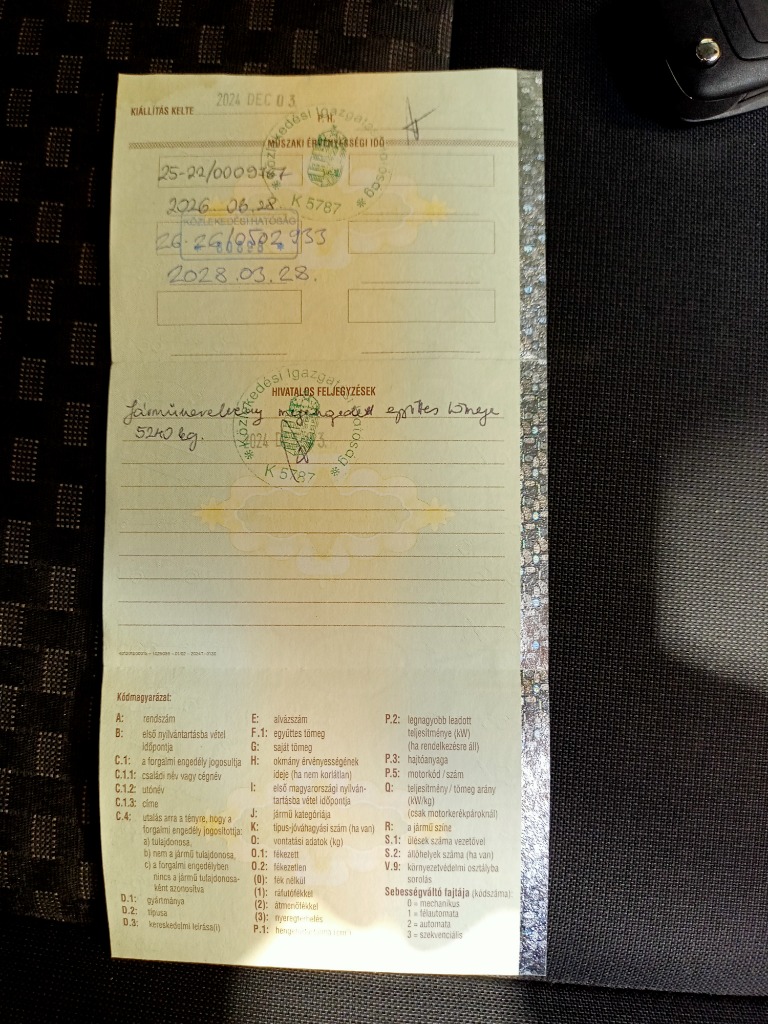 KIÁLLÍTÁS KELTE 2024 DEC 03.
P. H.
MŰSZAKI ÉRVÉNYESSÉGI IDŐ
Közlekedési Igazgatóság
K 5787
2026.06.28.
KÖZLEKEDÉSI HATÓSÁG
26-26/0502933
2028.03.28.
HIVATALOS FELJEGYZÉSEK
Közlekedési Igazgatósági
Járműszerelvény megengedett együttes tömege
5240 kg.
K 5787
Kódmagyarázat:
A: rendszám
B: első nyilvántartásba vétel
időpontja
C.1: a forgalmi engedély jogosítottja
C.1.1: családi név vagy cégnév
C.1.2: utónév
C.1.3: címe
C.4: utalás arra a tényre, hogy a
forgalmi engedély jogosítottja:
a) tulajdonosa,
b) nem a jármű tulajdonosa,
c) a forgalmi engedélyben
nincs a jármű tulajdonosa-
ként azonosítva
D.1: gyártmánya
D.2: típusa
D.3: kereskedelmi leírása(i)
E: alvázszám
F.1: együttes tömeg
G: saját tömeg
H: okmány érvényességének
ideje (ha nem korlátlan)
I: első magyarországi nyilván-
tartásba vétel időpontja
J: jármű kategóriája
K: típus-jóváhagyási szám (ha van)
O: vontatási adatok (kg)
O.1: fékezett
O.2: fékezetlen
(0): fék nélkül
(1): ráfutófékkel
(2): átmenőfékkel
(3): nyeregterhelés
P.1:
P.2: legnagyobb leadott
teljesítménye (kW)
(ha rendelkezésre áll)
P.3: hajtóanyaga
P.5: motorkód / szám
Q: teljesítmény / tömeg arány
(kW/kg)
(csak motorkerékpároknál)
R: a jármű színe
S.1: ülések száma vezetővel
S.2: állóhelyek száma (ha van)
V.9: környezetvédelmi osztályba
sorolás
Sebességváltó fajtája (kódszáma):
0 = mechanikus
1 = félautomata
2 = automata
3 = szekvenciális